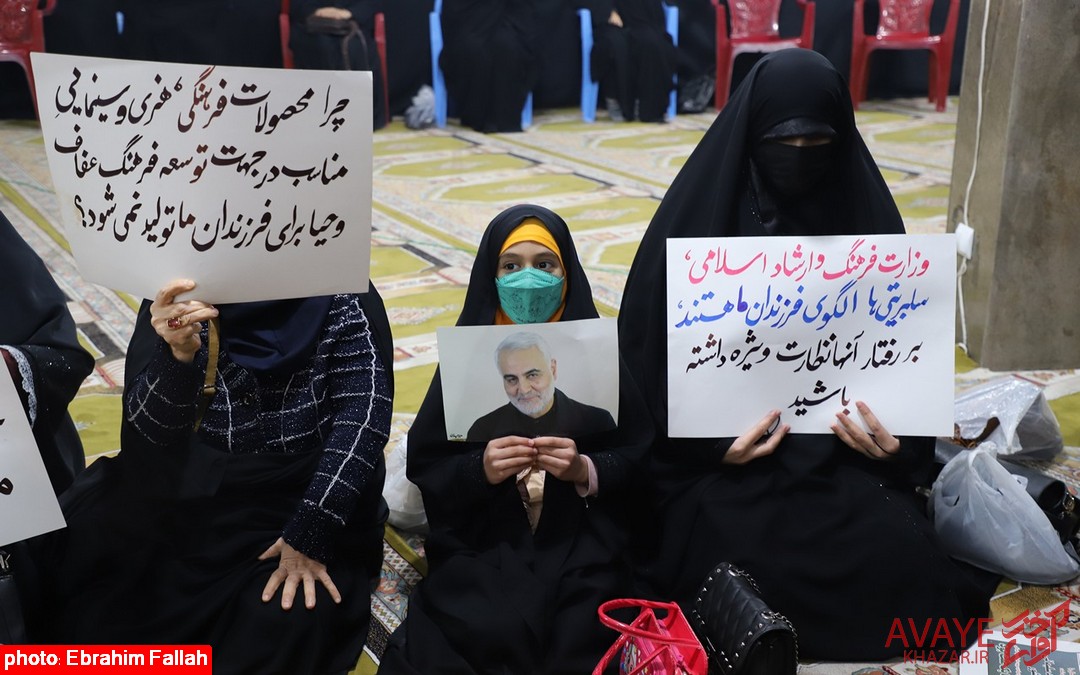 چرا محصولات فرهنگی، هنری و سینمایی
مناسب در جهت توسعه فرهنگ عفاف
و حیا برای فرزندان ما تولید نمی شود؟
وزارت فرهنگ و ارشاد اسلامی،
سلبریتی ها الگوی فرزندان ما هستند،
بر رفتار آنها نظارت ویژه داشته
باشید
photo: Ebrahim Fallah
AVAYE
KHAZAR.IR
آوای خزر